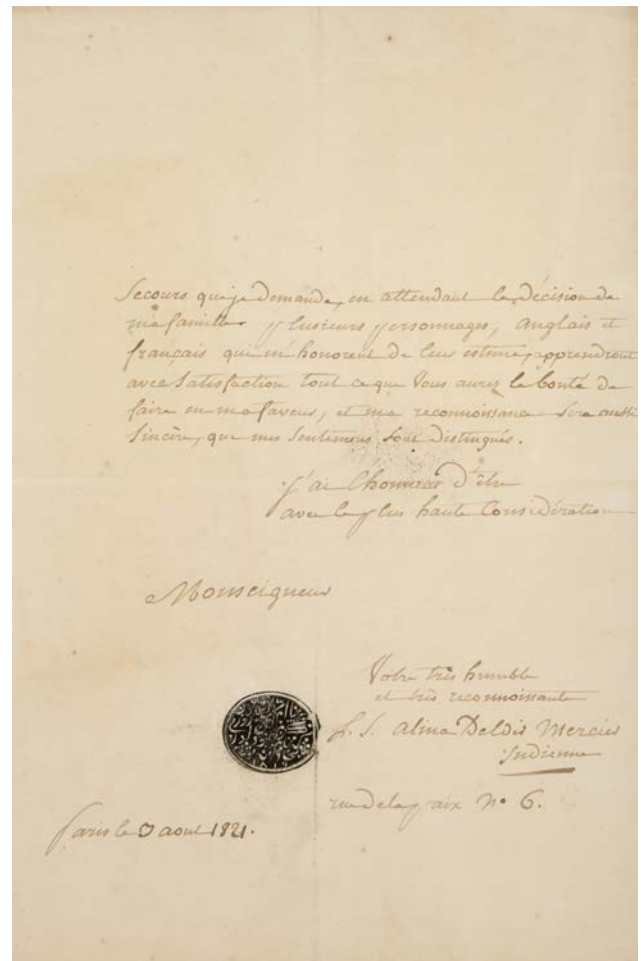 Secours que je demande, en attendant la décision de
ma famille. plusieurs personnages, anglais et
français qui m'honorent de leur estime, apprendront
avec satisfaction tout ce que Vous aurez la bonté de
faire en ma faveur, et ma reconnoissance sera aussi
sincère, que mes sentimens sont distingués.
j'ai l'honneur d'être
avec la plus haute Considération
Monseigneur
Votre très humble
et très reconnoissante
Alina Deldir Mercier
Indienne
rue de la paix No 6.
paris le août 1821.